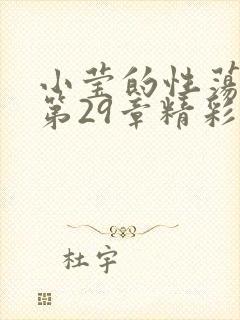 小莹的性荡
第29章精彩
杜宇